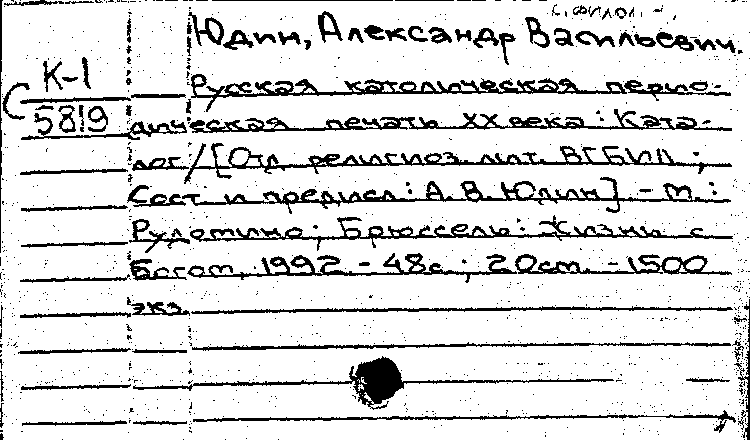 Юдин, Александр Васильевич.
К-1
5819
Русская католическая перио-
дическая печать XX века : Ката-
лог / [Отд. религиоз. лит. ВГБИЛ ;
Сост и предисл.: А. В. Юдин] - М. :
Рудомино ; Брюссель : Жизнь с
Богом, 1992. - 48с. ; 20см. - 1500
экз.